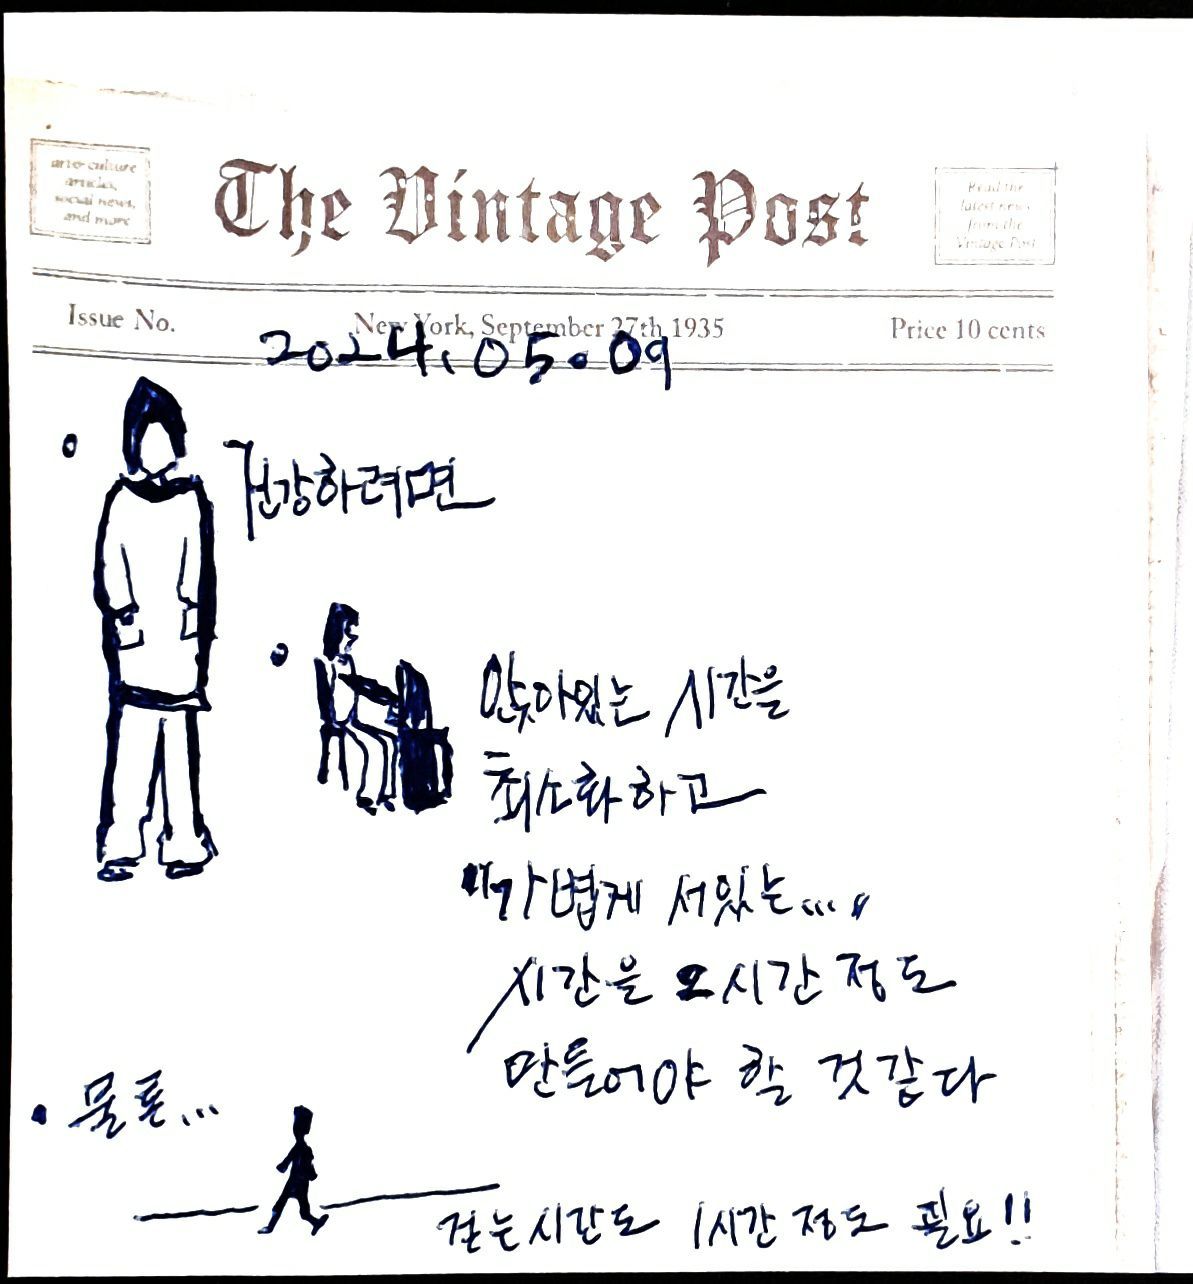 arts & culture
articles,
social news,
and more
The Vintage Post
Read the
latest news
from the
Vintage Post
Issue No.
New York, September 27th 1935
Price 10 cents
2024.05.09
건강하려면
앉아있는 시간을
최소화하고
"가볍게 서있는..."
시간을 2시간 정도
만들어야 할 것 같다
물론...
걷는시간도 1시간 정도 필요!!